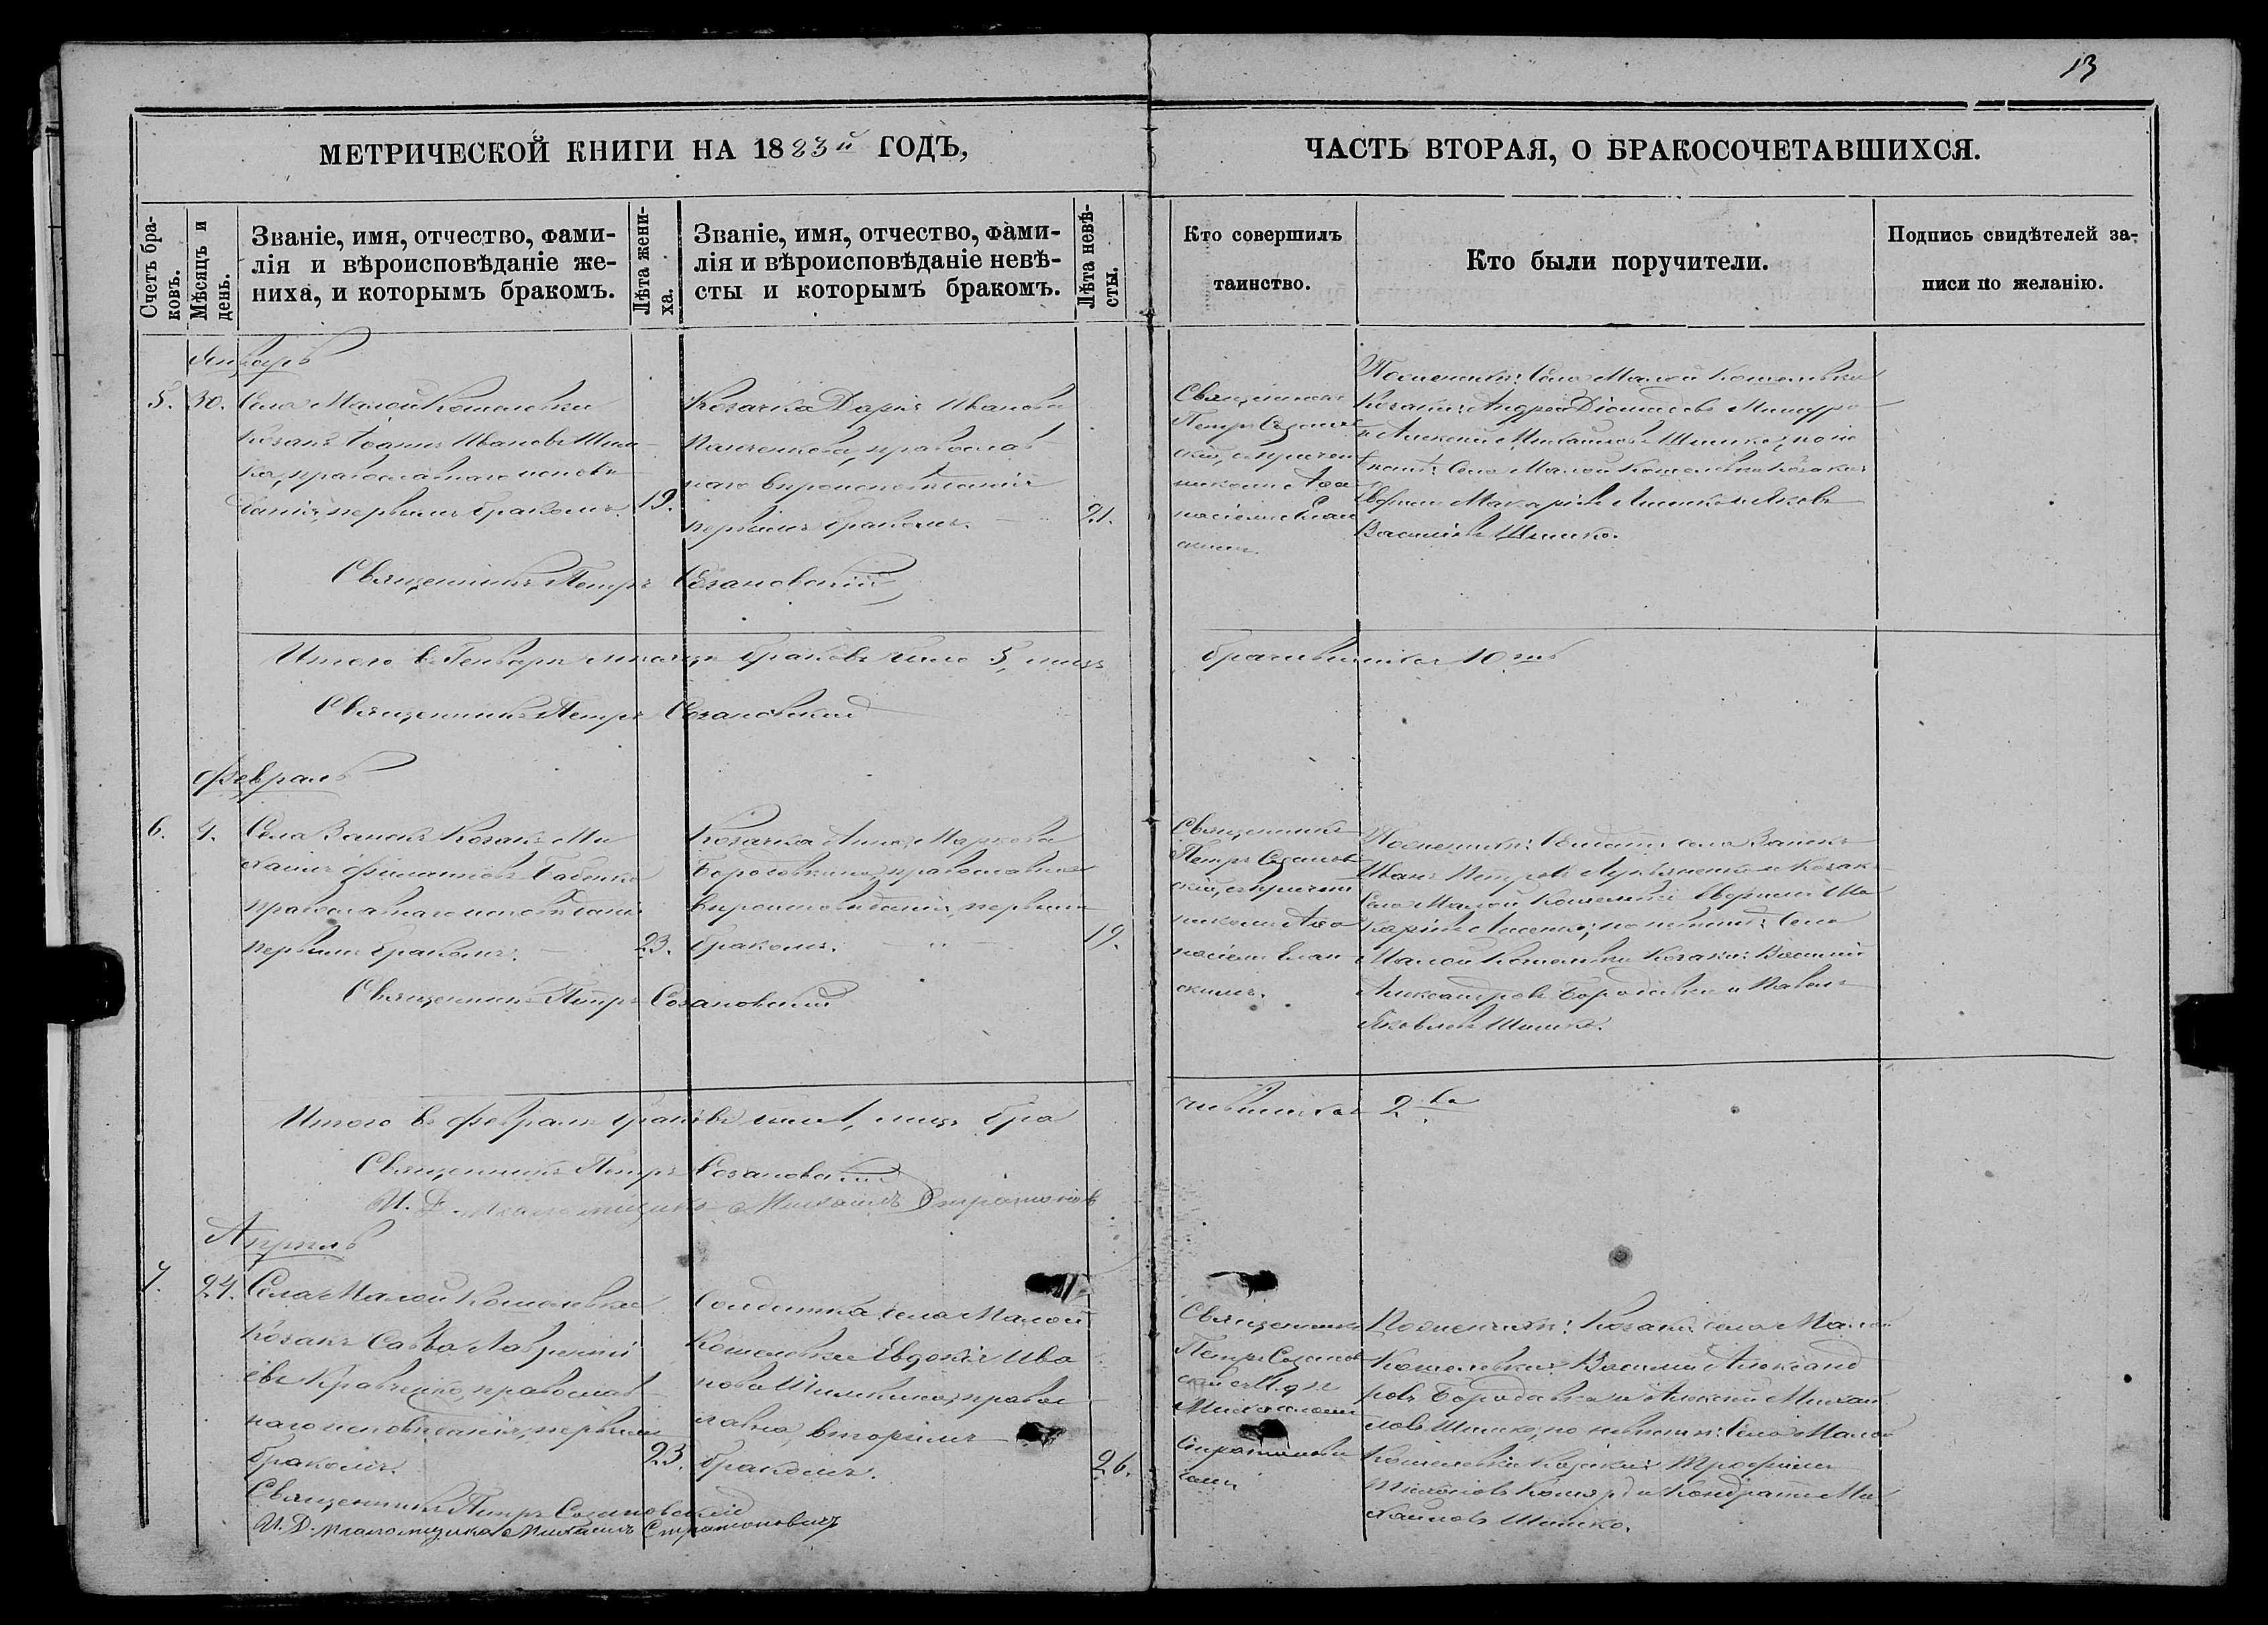 13
МЕТРИЧЕСКОЙ КНИГИ НА 1883й ГОДЪ,
ЧАСТЬ ВТОРАЯ, О БРАКОСОЧЕТАВШИХСЯ.
Счетъ бра-
ковъ.
Мѣсяцъ и
день.
Званіе, имя, отчество, фами-
лія и вѣроисповѣданіе же-
ниха, и которымъ бракомъ.
Лѣта жени-
ха.
Званіе, имя, отчество, фами-
лія и вѣроисповѣданіе невѣ-
сты и которымъ бракомъ.
Лѣта невѣ-
сты.
Кто совершилъ
таинство.
Кто были поручители.
Подпись свидѣтелей за-
писи по желанію.
Январь
5.
30.
Села Малой Кошелевки
Козакъ Іоаннъ Ивановъ
православнаго исповѣ
данія, первымъ бракомъ.
19.
Козачка Дарія Иванова
православ
наго вѣроисповѣданія
первымъ бракомъ.
21.
Священникъ
Петръ Созанов
скій, съ причет
никомъ Афа
насіемъ Елан
скимъ.
Села Малой Кошелевки
Козаки: Андрей Діомидовъ
и Алексѣй Михайловъ Шишко, по не
вѣстѣ: Села Малой Кошелевки Козаки:
Макаріевъ и Яковъ
Василіевъ Шишко.
Священникъ Петръ Созановскій
Итого въ Генварѣ мѣсяцѣ браковъ было 5, лицъ
брачившихся 10ть
Священникъ Петръ Созановскій
Февраль
6.
4.
Села Козакъ Ми
хаилъ Филиповъ Бабенко
православнаго исповѣданія
первымъ бракомъ.
23.
Козачка Анна Маркова
Бородавкина, православнаго
вѣроисповѣданія, первымъ
бракомъ.
19.
Священникъ
Петръ Созанов
скій, съ причет
никомъ Афа
насіемъ Елан
скимъ.
села
Иванъ Петровъ и Козакъ
Села Малой Кошелевки Ма
каріевъ; по невѣстѣ: Села
Малой Кошелевки Козаки: Василій
Александровъ Бородавка и Павелъ
Яковлевъ Шишко.
Священникъ Петръ Созановскій
Итого въ Февралѣ браковъ было 1, лицъ бра
чившихся 2ва
Священникъ Петръ Созановскій
И. Д. псаломщика Михаилъ Стратоновичъ
Апрѣль
7.
24.
Села Малой Кошелевки
Козакъ Савва Лавренті
евъ Кравченко, православ
наго исповѣданія, первымъ
бракомъ.
23.
Солдатка села Малой
Кошелевки Евдокія Ива
нова Шишкина, правос
лавна, вторымъ
бракомъ.
26.
Священникъ
Петръ Созанов
скій съ И. д. п
Михаиломъ
Стратонови
чемъ
Козаки села Малой
Кошелевки: Василій Александ
ровъ Бородавка и Алексѣй Михай
ловъ Шишко, по невѣстѣ: Села Малой
Кошелевки Козаки: Трофимъ
и Кондратъ Ми
хайловъ Шишко.
Священникъ Петръ Созановскій
И. Д. псаломщика Михаилъ Стратоновичъ